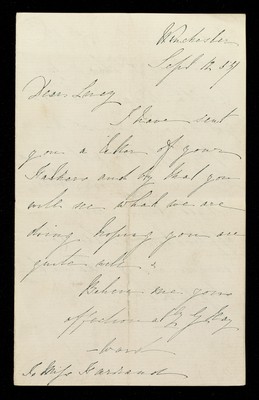 Winchester
Sept 12
Dear Leroy
I have sent
you a letter of your
Fathers and by that you
will see what we are
doing hoping you are
quite well &
Believe me your
affectionately
To Miss Farrand